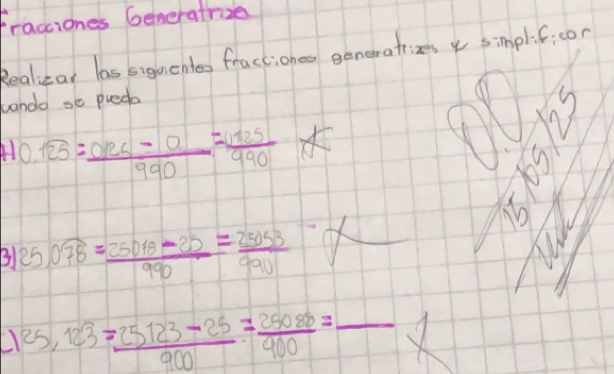 Fracciones Generatriz
Realizar las siguientes fracciones generatrizes y simplificar
cuando se pueda
A) 0,125 = 0125 - 0 / 990 = 0125 / 990
B) 25,078 = 25078 - 25 / 990 = 25053 / 990
C) 25,123 = 25123 - 25 / 900 = 25098 / 900 =
0.0